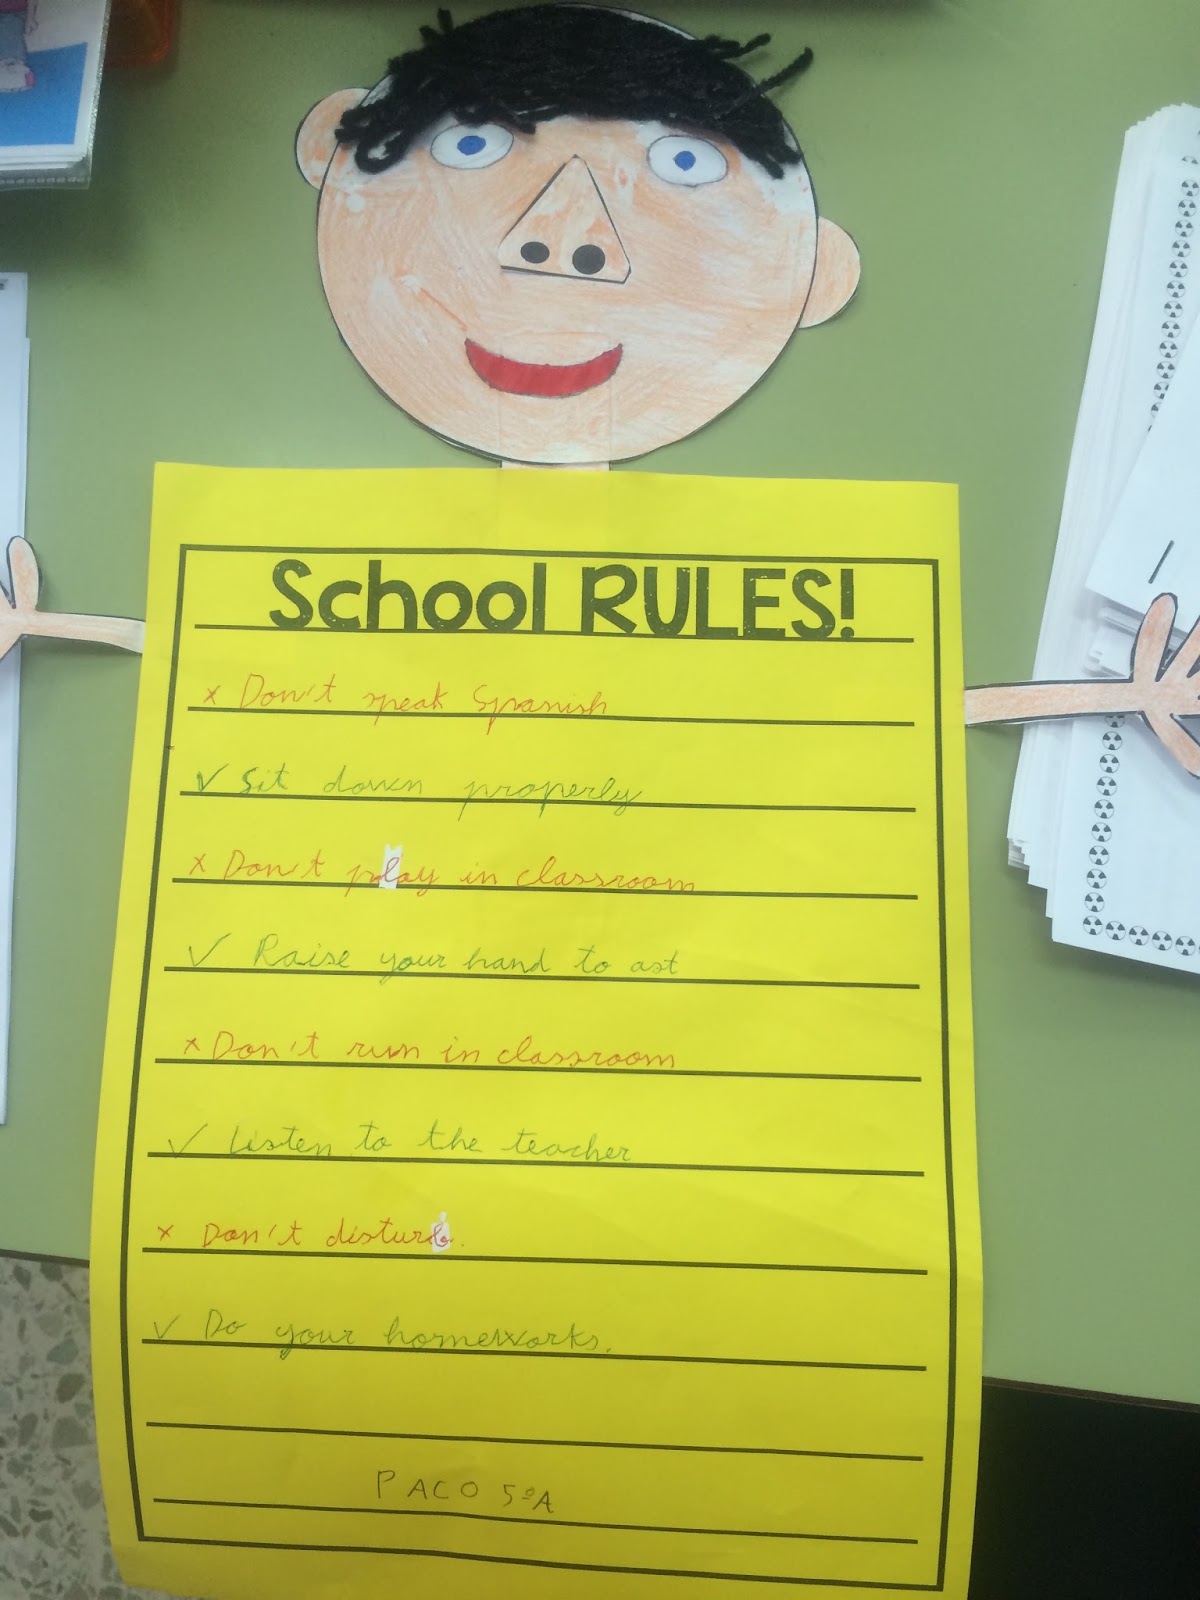 School RULES!
x Don't speak Spanish
✓ Sit down properly
x Don't play in classroom
✓ Raise your hand to ast
x Don't run in classroom
✓ Listen to the teacher
x Don't disturb.
✓ Do your homeworks.
PACO 5ºA